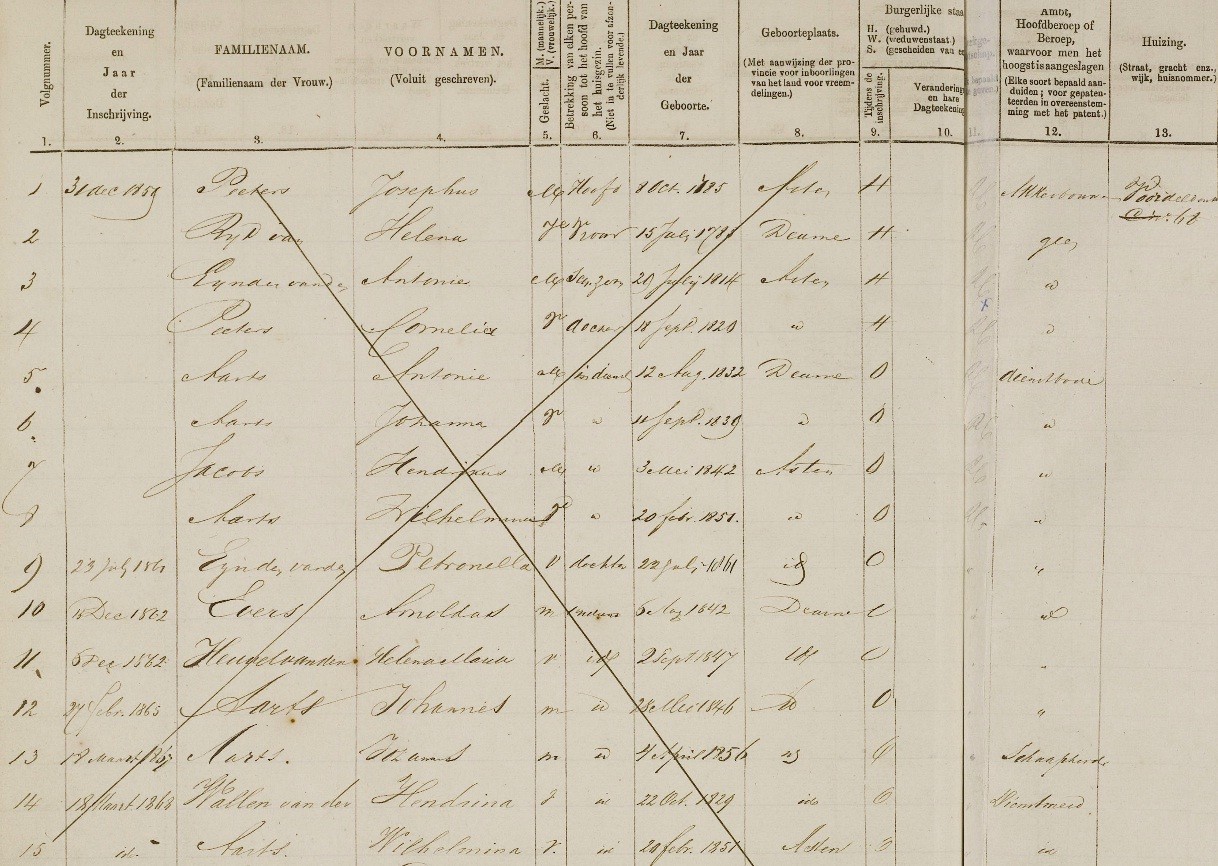 Volgnummer.
Dagteekening en Jaar der Inschrijving.
FAMILIENAAM.
(Familienaam der Vrouw.)
VOORNAMEN.
(Voluit geschreven.)
Geslacht. M. (mannelijk.) V. (vrouwelijk.)
Betrekking van elken persoon tot het hoofd van het huisgezin.
(Niet in te vullen voor afzonderlijk levende.)
Dagteekening en Jaar der Geboorte.
Geboorteplaats.
(Met aanwijzing der provincie voor inboorlingen van het land voor vreemdelingen.)
Burgerlijke staa
H. (gehuwd.)
W. (weduwenstaat.)
S. (gescheiden van
Tijdens de inschrijving.
Verandering en hare Dagteekening
Ambt, Hoofdberoep of Beroep, waarvoor men het hoogst is aangeslagen
(Elke soort bepaald aanduiden; voor gepatenteerden in overeenstemming met het patent.)
Huizing.
(Straat, gracht enz., wijk, huisnommer.)
1. 2. 3. 4. 5. 6. 7. 8. 9. 10. 11. 12. 13.
1 31 dec 1859 Peeters Josephus M Hoofd 8 Oct. 1785 Asten H Akkerbouwer
68
2 Ryt van Helena Vrouw 15 Julij Deurne H geen
3 Eynden vanden Antonie M 20 Julij 1814 Asten H id
4 Peeters Cornelia V dochter 18 Sept. 1820 id H id
5. Aarts Antonie M 12 Aug. 1832 Deurne O dienstbode
6 Aarts Johanna V id Sept. 1839 id O id
7 Jacobs Hendrikus M id 3 Mei 1842 Asten O id
8 Aarts Wilhelmina V id 20 febr. 1851. id O id
9 23 July 1861 Eynden vanden Petronella V dochter 22 July 1861 id O "
10 Dec 1862 Evers Arnoldus m 1842 Deurne O id
11 6 Dec 1862 Heugel vanden Helena Maria v id 2 Sept 1847 id O "
12 27 febr. 1865 Aarts Johannes m id 28 Mei 1846 id O "
13 18 Maart 1867 Aarts. m id 4 April 1856 id O Schaapherder
14 18 Maart 1868 Wallen van der Hendrina V id 22 Oct. 1829 id O Dienstmeid
15 id Aarts. Wilhelmina V. id 20 febr. 1851 Asten O id